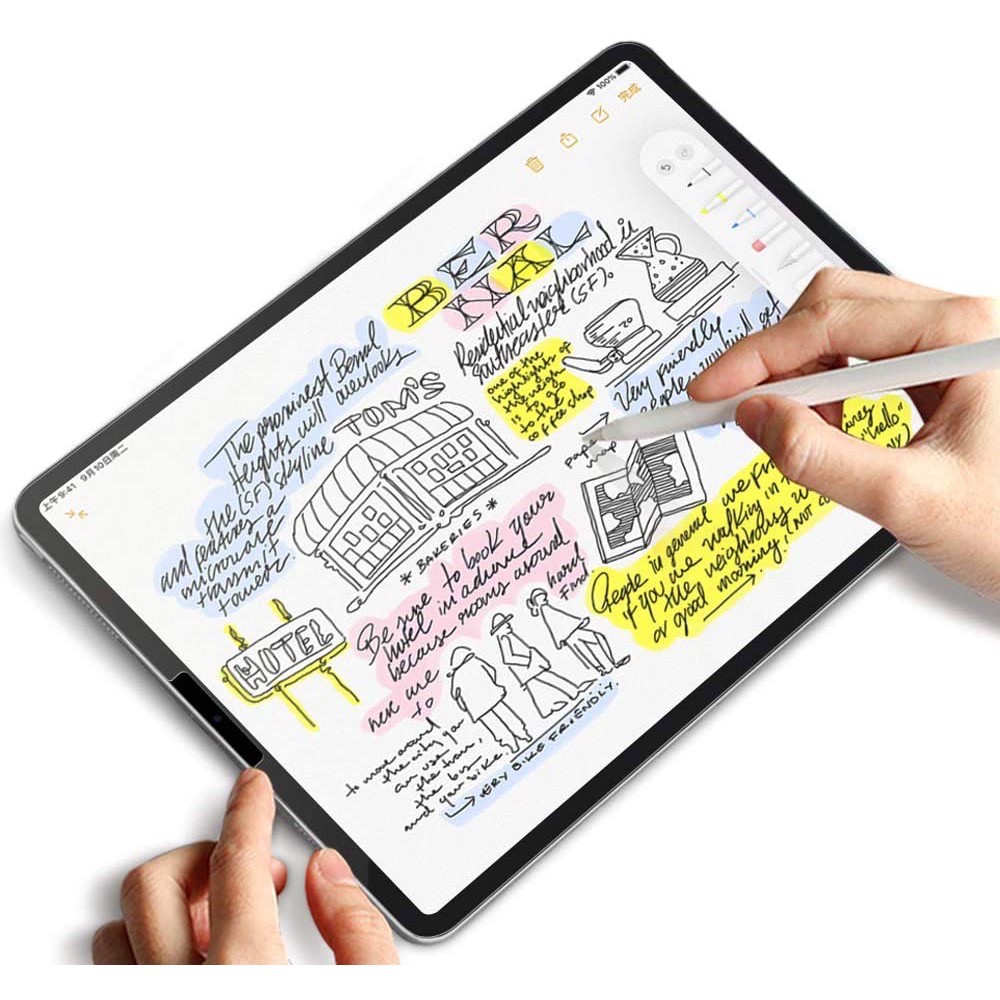 上午9:41 9月10日周二
100%
完成
BER
NAL
Residential neighborhood is
southeastern (SF).
The prominest Bernal
Heights will overlooks
the (SF) skyline
and features a
microwave
transmit
tower
TOM'S
* BAKERIES *
one of the
highlights of
the nego
is to go
to the
coffee shop
Very friendly
people
you will get
paper
map
HOTEL
Be sure to book your
hotel in advance
because rooms around
here are hard
to find
to move around
the city you
can use
the tram,
the bus
and your bike.
→ VERY BIKE FRIENDLY.
People in general
if you are walking in
the neighborhood
or good morning! (NOT
"hello"